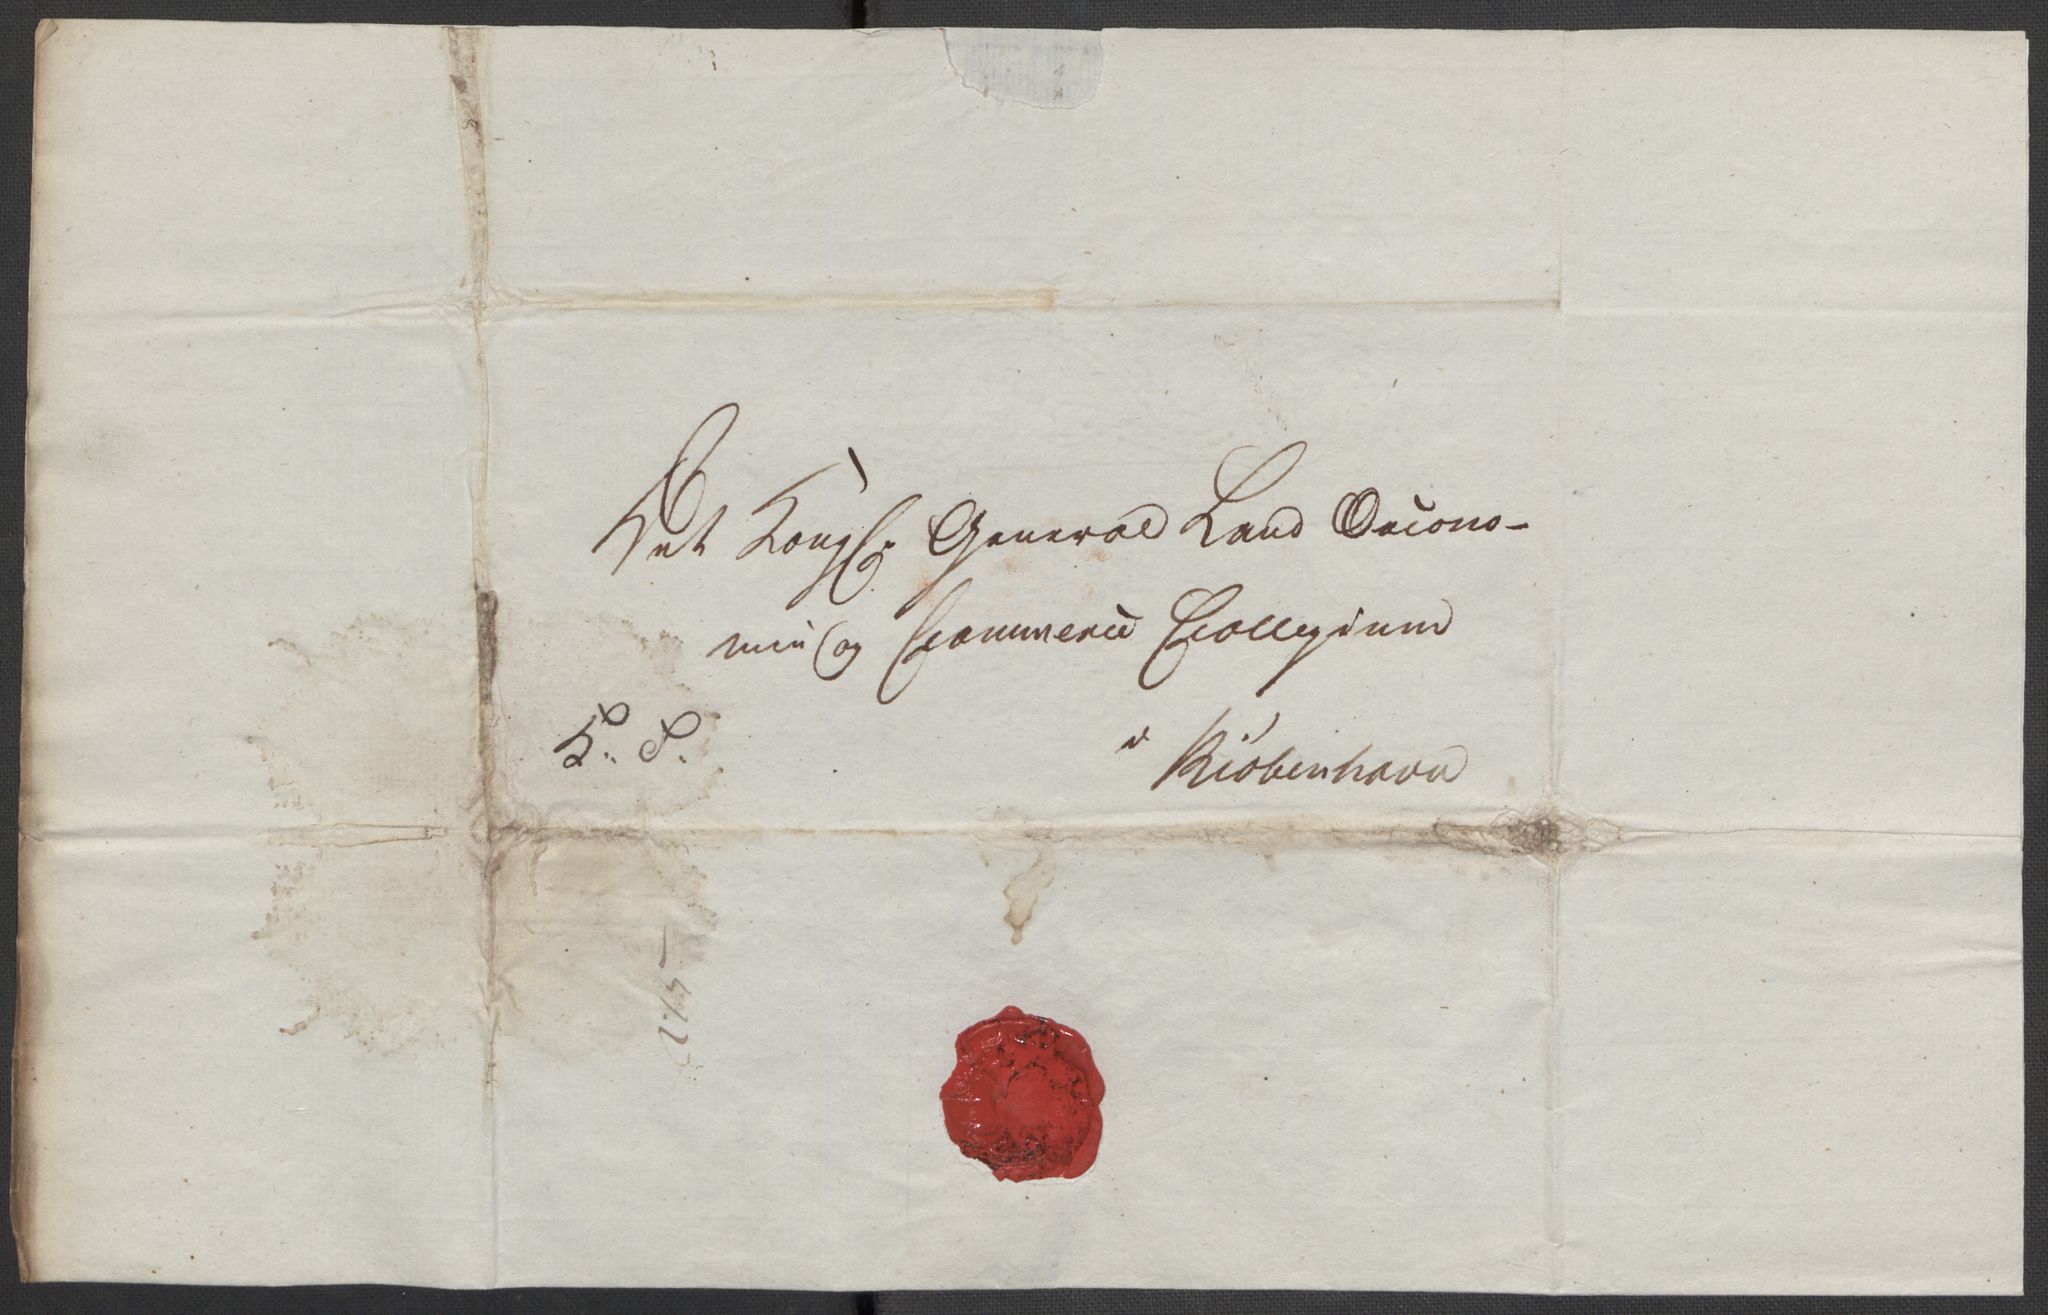 Det Kongl. General Land Oecono-
mie og Commerce Collegium
K. S.
i Kiøbenhavn